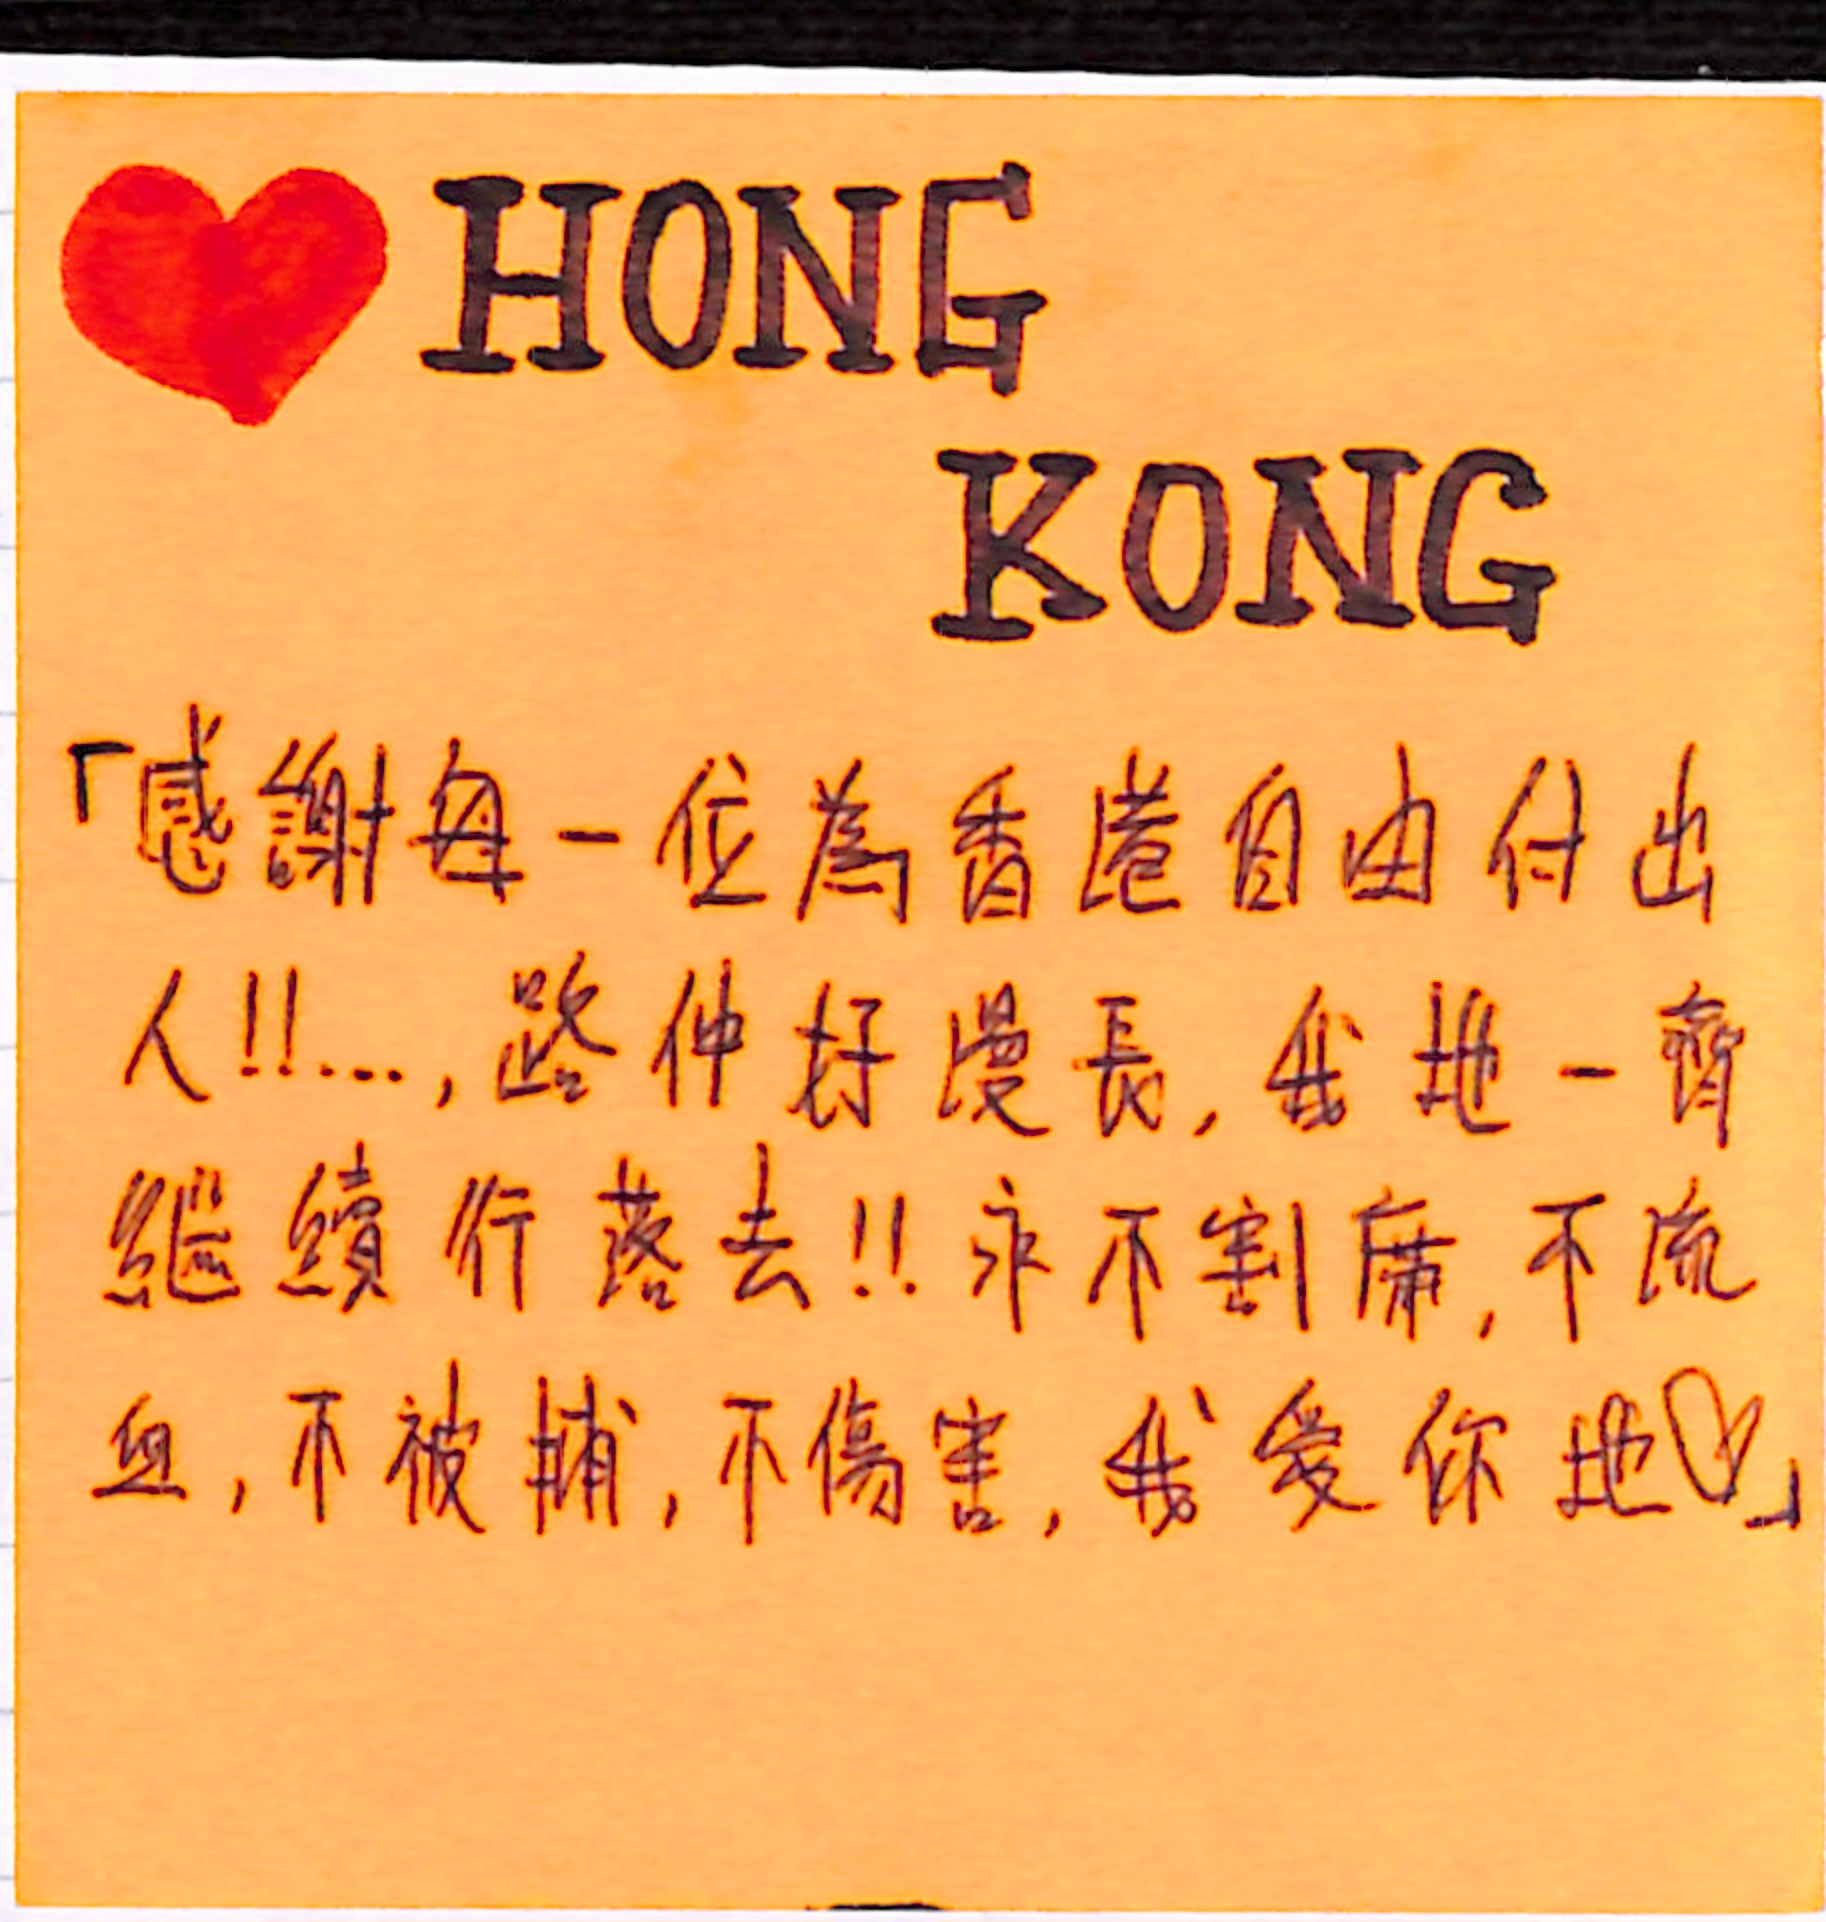 HONG
KONG
「感謝每一位為香港自由付出
人!!...,路仲好漫長,我地一齊
繼續行落去!!永不割蓆,不流
血,不被捕,不傷害,我愛你地♡」